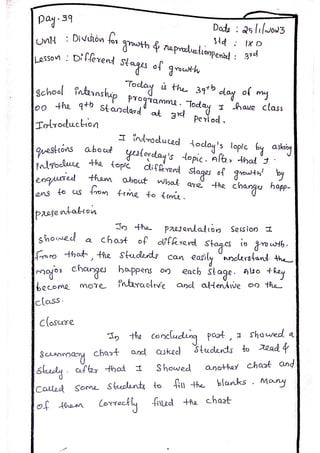 Day-39
Date : 25/1/2023
Unit : Division for growth & reproduction period : 3rd
Std : IX D
Lesson : Different stages of growth
Today is the 39th day of my
School internship programme. Today I have class
on the 9th Standard at 3rd Period.
Introduction
I introduced today's topic by asking
questions about yesterday's topic. After that I
introduce the topic different stages of growth' by
enquired them about what are the changes happ-
ens to us from time to time.
presentation
In the presentation session I
showed a chart of different stages in growth.
From that, the students can easily understand the
major changes happens on each stage. Also they
become more interactive and attentive on the
class.
Closure
In the concluding part, I showed a
summary chart and asked students to read &
study. After that I showed another chart and
called some students to fill the blanks. Many
of them correctly filled the chart